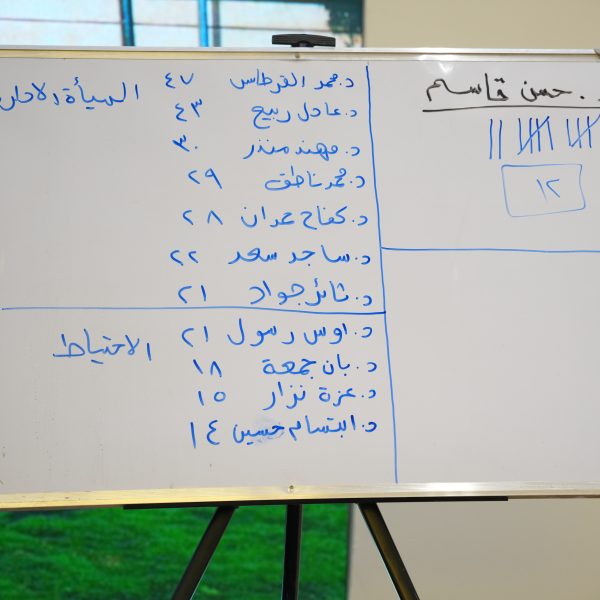 د. حسن قاسم
١٢
الهيأة الادار
د. محمد القرطاس ٤٧
د. عادل ربيع ٤٣
د. مهند منذر ٣٠
د. محمد ناطق ٢٩
د. كفاح حمدان ٢٨
د. ساجد سعد ٢٢
د. ثائر جواد ٢١
الاحتياط
د. اوس رسول ٢١
د. بان جمعة ١٨
د. عزة نزار ١٥
د. ابتسام حسين ١٤